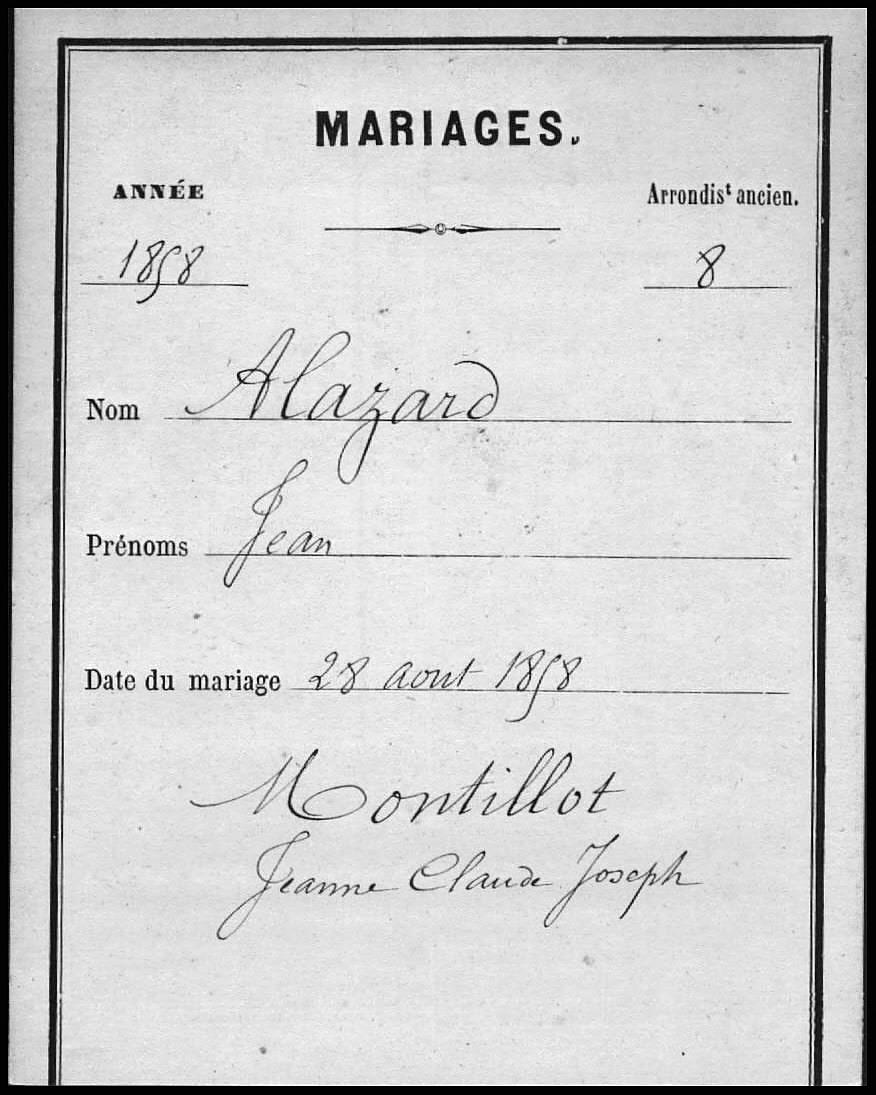 MARIAGES.
ANNÉE Arrondis<sup>t</sup> ancien.
1858 8
Nom Alazard
Prénoms Jean
Date du mariage 28 aout 1858
Montillot
Jeanne Claude Joseph